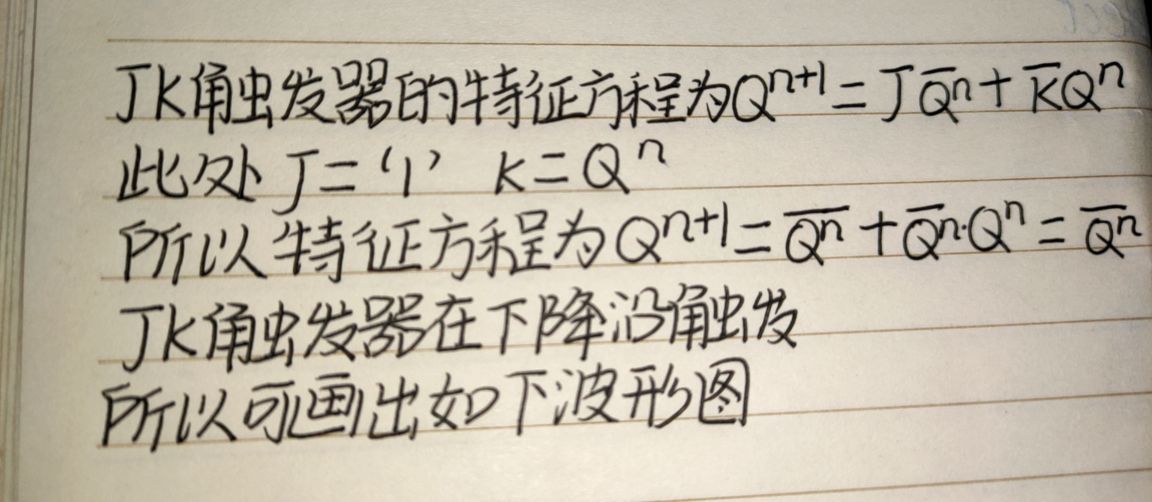 JK触发器的特征方程为Qⁿ⁺¹=JQ̅ⁿ+K̅Qⁿ
此处 J=‘1’ K=Qⁿ
所以特征方程为Qⁿ⁺¹=Q̅ⁿ+Q̅ⁿ·Qⁿ=Q̅ⁿ
JK触发器在下降沿触发
所以可画出如下波形图